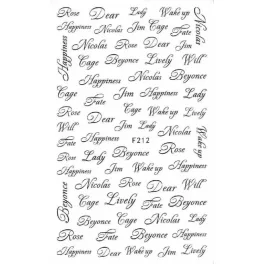 Rose Dear Lady Wake up
Happiness Nicolas Rose Jim Fate
Happiness
Nicolas
Cage Dear Lively Will
Nicolas Cage Beyonce
Happiness Lively
Cage Rose Beyonce
Fate Happiness
Rose Dear Cage
Will Jim Lady Nicolas
Nicolas F212 Will
Wake up
Rose Lady Beyonce Rose
Happiness Jim Wake up Happiness
Beyonce
Nicolas Rose Dear Will
Cage Lively Cage Fate
Beyonce Cage Nicolas
Rose Fate Beyonce Rose
Happiness Dear Wake up Jim Lively